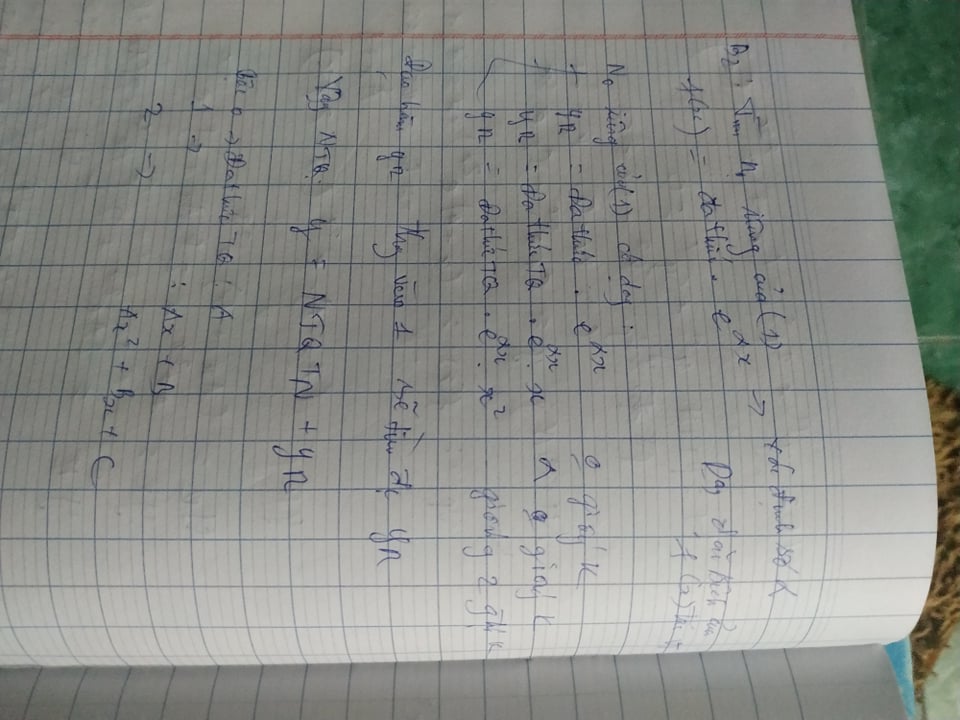 B2: Tìm n0 riêng của (1) → xác định số α
f(x) = đa thức . e^αx → Dạng
f(x)
N0 riêng của (1) có dạng:
+ yr = đa thức . e^αx 0 giống K
+ yr = đa thức TQ . e^αx . x α giống K
yr = đa thức TQ . e^αx . x² giống 2 gtrị K
Đạo hàm yr thay vào 1 sẽ tìm đc yr
Vậy NTQ. y = NTQTN + yr
Bậc 0 → Đa thức TQ : A
1 → : Ax + B
2 → Ax² + Bx + C